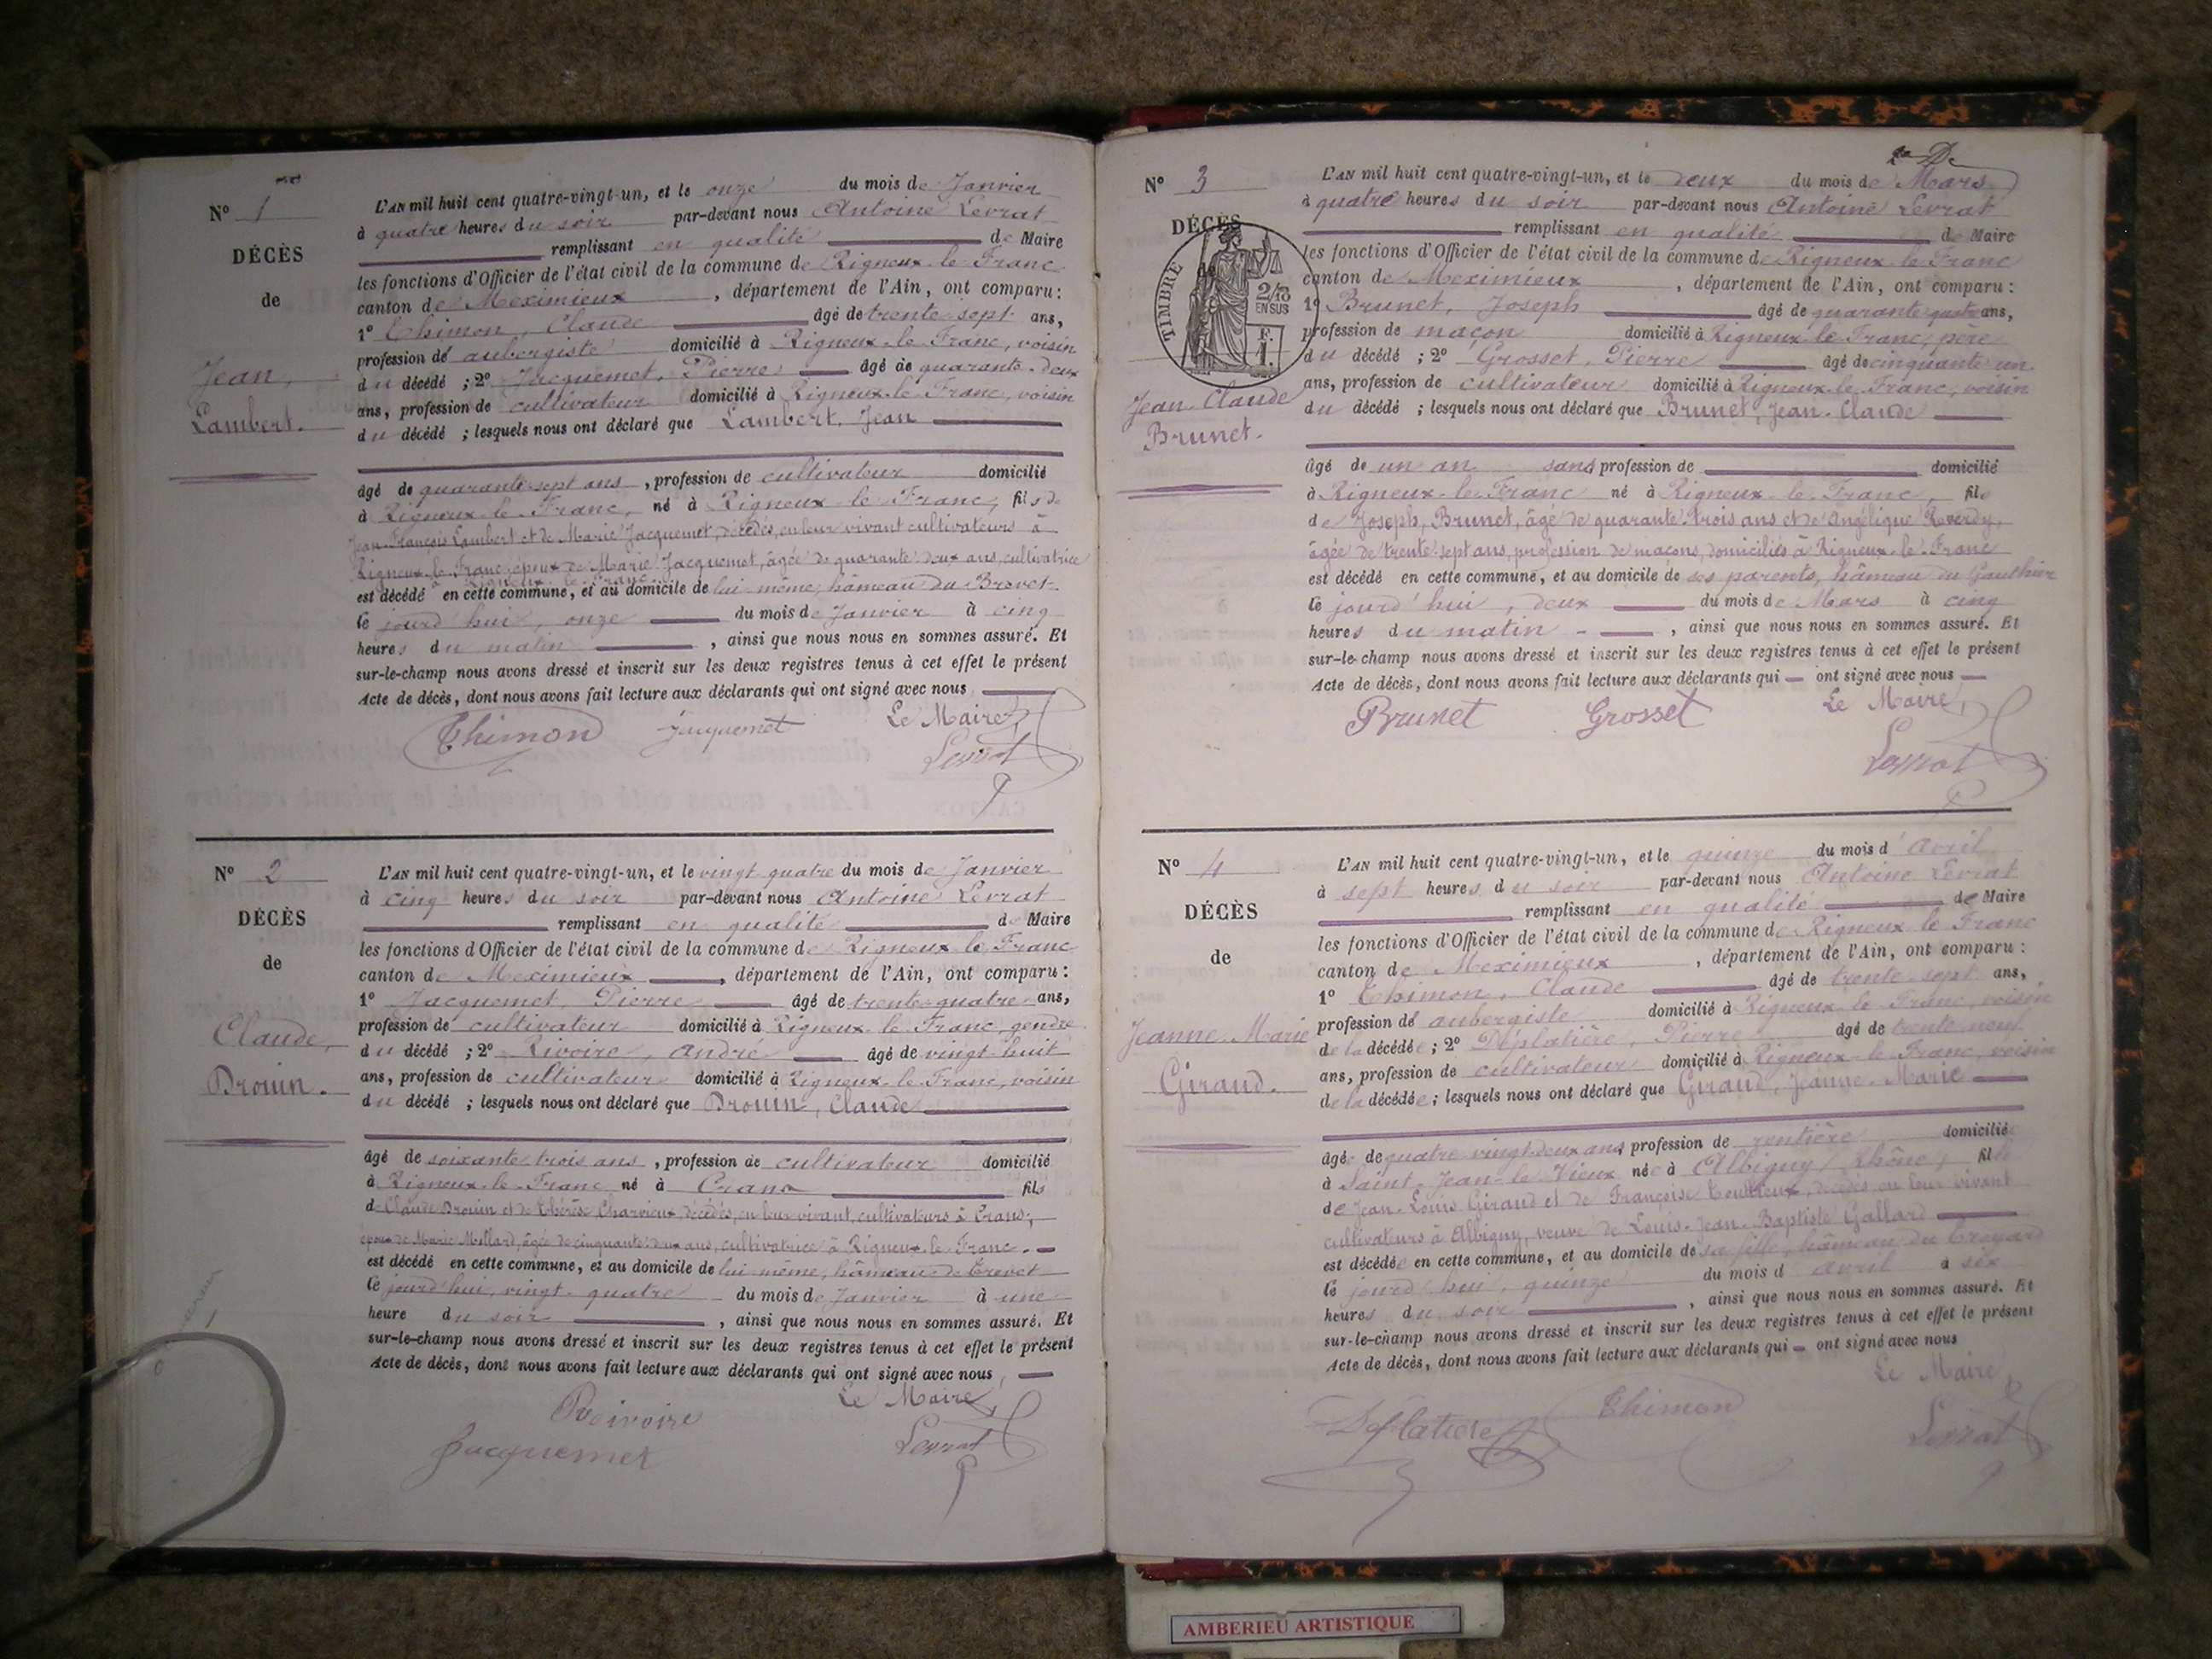 N° 1
DÉCÈS
de
Jean
Lambert.
L'AN mil huit cent quatre-vingt-un, et le onze du mois de Janvier
à quatre heures du soir par-devant nous Antoine Levrat
remplissant en qualité de Maire
les fonctions d'Officier de l'état civil de la commune de Rigneux-le-Franc
canton de Meximieux, département de l'Ain, ont comparu :
1° Thimon, Claude âgé de trente-sept ans,
profession de aubergiste domicilié à Rigneux-le-Franc, voisin
du décédé ; 2° Jacquemet, Pierre âgé de quarante-deux
ans, profession de cultivateur domicilié à Rigneux-le-Franc, voisin
du décédé ; lesquels nous ont déclaré que Lambert, Jean
âgé de quarante-sept ans, profession de cultivateur domicilié
à Rigneux-le-Franc, né à Rigneux-le-Franc, fils de
Jean François Lambert et de Marie Jacquemet, décédés, en leur vivant cultivateurs à
Rigneux-le-Franc, époux de Marie Jacquemet, âgée de quarante-deux ans, cultivatrice
à Rigneux-le-Franc
est décédé en cette commune, et au domicile de lui-même, hâmeau du
le jourd'hui, onze du mois de Janvier à cinq
heures du matin, ainsi que nous nous en sommes assuré. Et
sur-le-champ nous avons dressé et inscrit sur les deux registres tenus à cet effet le présent
Acte de décès, dont nous avons fait lecture aux déclarants qui ont signé avec nous
Thimon Jacquemet Le Maire,
Levrat
N° 2
DÉCÈS
de
Claude,
Drouin.
L'AN mil huit cent quatre-vingt-un, et le vingt-quatre du mois de Janvier
à cinq heures du soir par-devant nous Antoine Levrat
remplissant en qualité de Maire
les fonctions d'Officier de l'état civil de la commune de Rigneux-le-Franc
canton de Meximieux, département de l'Ain, ont comparu :
1° Jacquemet, Pierre âgé de trente-quatre ans,
profession de cultivateur domicilié à Rigneux-le-Franc, gendre
du décédé ; 2° Rivoire, André âgé de vingt-huit
ans, profession de cultivateur domicilié à Rigneux-le-Franc, voisin
du décédé ; lesquels nous ont déclaré que Drouin, Claude
âgé de soixante-trois ans, profession de cultivateur domicilié
à Rigneux-le-Franc né à Crans fils
de Claude Drouin et de Thérèse Charvieux, décédés, en leur vivant, cultivateurs à Crans,
époux de Marie Millard, âgée de cinquante-deux ans, cultivatrice à Rigneux-le-Franc.
est décédé en cette commune, et au domicile de lui-même, hâmeau de
le jourd'hui, vingt-quatre du mois de Janvier à une
heure du soir, ainsi que nous nous en sommes assuré. Et
sur-le-champ nous avons dressé et inscrit sur les deux registres tenus à cet effet le présent
Acte de décès, dont nous avons fait lecture aux déclarants qui ont signé avec nous,
Reivoire Le Maire,
Jacquemet Levrat
N° 3
DÉCÈS
TIMBRE
2/10
EN SUS
F.
1.
Jean-Claude
Brunet.
L'AN mil huit cent quatre-vingt-un, et le deux du mois de Mars
à quatre heures du soir par-devant nous Antoine Levrat
remplissant en qualité de Maire
les fonctions d'Officier de l'état civil de la commune de Rigneux-le-Franc
canton de Meximieux, département de l'Ain, ont comparu :
1° Brunet, Joseph âgé de quarante-quatre ans,
profession de maçon domicilié à Rigneux-le-Franc, père
du décédé ; 2° Grosset, Pierre âgé de cinquante-un
ans, profession de cultivateur domicilié à Rigneux-le-Franc, voisin
du décédé ; lesquels nous ont déclaré que Brunet, Jean-Claude
âgé de un an sans profession de domicilié
à Rigneux-le-Franc né à Rigneux-le-Franc, fils
de Joseph, Brunet, âgé de quarante-trois ans et de Angélique Reverdy,
âgée de trente-sept ans, profession de maçons, domiciliés à Rigneux-le-Franc
est décédé en cette commune, et au domicile de ses parents, hâmeau du Gauthier
le jourd'hui, deux du mois de Mars à cinq
heures du matin, ainsi que nous nous en sommes assuré. Et
sur-le-champ nous avons dressé et inscrit sur les deux registres tenus à cet effet le présent
Acte de décès, dont nous avons fait lecture aux déclarants qui ont signé avec nous
Brunet Grosset Le Maire,
Levrat
N° 4
DÉCÈS
de
Jeanne-Marie
Giraud.
L'AN mil huit cent quatre-vingt-un, et le quinze du mois d'avril
à sept heures du soir par-devant nous Antoine Levrat
remplissant en qualité de Maire
les fonctions d'Officier de l'état civil de la commune de Rigneux-le-Franc
canton de Meximieux, département de l'Ain, ont comparu :
1° Thimon, Claude âgé de trente-sept ans,
profession de aubergiste domicilié à Rigneux-le-Franc, voisin
de la décédée ; 2° Déplatière, Pierre âgé de trente-neuf
ans, profession de cultivateur domicilié à Rigneux-le-Franc, voisin
de la décédée ; lesquels nous ont déclaré que Giraud, Jeanne-Marie
âgée de quatre-vingt-deux ans profession de rentière domicilié
à Saint-Jean-le-Vieux née à Albigny (Rhône), fille
de Jean-Louis Giraud et de Françoise décédés en leur vivant
cultivateurs à Albigny, veuve de Louis-Jean-Baptiste Gallard
est décédée en cette commune, et au domicile de sa fille, hâmeau du
le jourd'hui, quinze du mois d'avril à six
heures du soir, ainsi que nous nous en sommes assuré. Et
sur-le-champ nous avons dressé et inscrit sur les deux registres tenus à cet effet le présent
Acte de décès, dont nous avons fait lecture aux déclarants qui ont signé avec nous
Le Maire,
Déplatière Thimon Levrat
AMBERIEU ARTISTIQUE